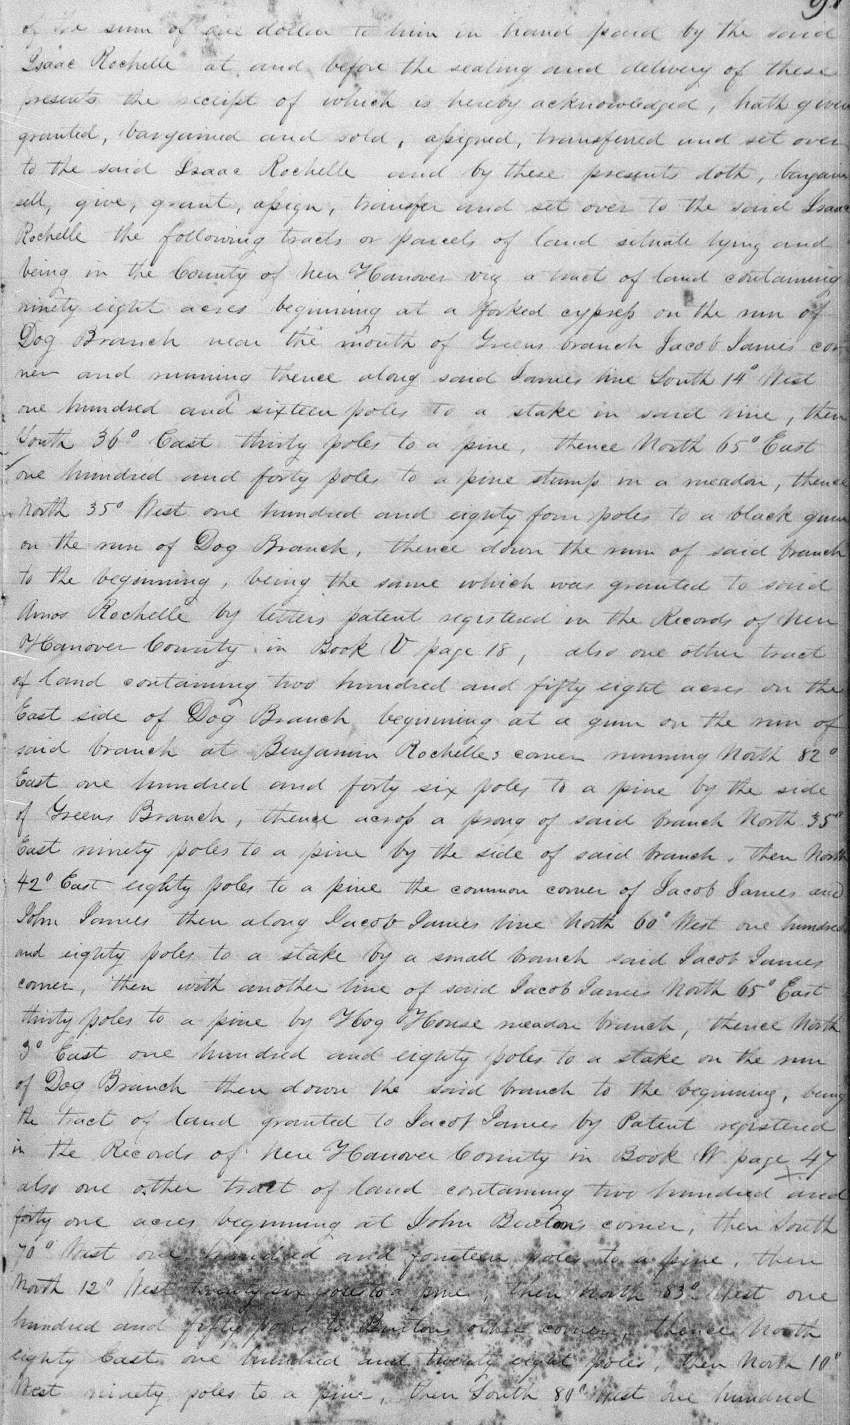 of the sum of one dollar to him in hand paid by the said
Isaac Rochelle at and before the sealing and delivery of these
presents the receipt of which is hereby acknowledged, hath given
granted, bargained and sold, assigned, transferred and set over
to the said Isaac Rochelle and by these presents doth, bargain
sell, give, grant, assign, transfer and set over to the said Isaac
Rochelle the following tracts or parcels of land situate lying and
being in the County of New Hanover viz a tract of land containing
ninety eight acres beginning at a forked cypress on the run of
Dog Branch near the mouth of Greens branch Jacob James cor
ner and running thence along said James line South 14° West
one hundred and sixteen poles to a stake in said line, then
South 36° East thirty poles to a pine, thence North 65° East
one hundred and forty poles to a pine stump in a meadow, thence
North 35° West one hundred and eighty four poles to a black gum
on the run of Dog Branch, thence down the run of said branch
to the beginning, being the same which was granted to said
Amos Rochelle by letters patent registered in the Records of New
Hanover County in Book V page 18, also one other tract
of land containing two hundred and fifty eight acres on the
East side of Dog Branch beginning at a gum on the run of
said branch at Benjamin Rochelles corner running North 82°
East one hundred and forty six poles to a pine by the side
of Greens Branch, thence across a prong of said branch North 35°
East ninety poles to a pine by the side of said branch, then North
42° East eighty poles to a pine the common corner of Jacob James and
John James then along Jacob James line North 60° West one hundred
and eighty poles to a stake by a small branch said Jacob James
corner, then with another line of said Jacob James North 65° East
thirty poles to a pine by Hog House meadow branch, thence North
3° East one hundred and eighty poles to a stake on the run
of Dog Branch then down the said branch to the beginning, being
the tract of land granted to Jacob James by Patent registered
in the Records of New Hanover County in Book W page 47
also one other tract of land containing two hundred and
forty one acres beginning at John Buxtons corner, then South
70° West one hundred and fourteen poles to a pine, then
North 12° West twenty six poles to a pine, then North 83° West one
hundred and fifty poles to Buxtons other corner, thence North
eighty East one hundred and twenty eight poles, then North 10°
West ninety poles to a pine, then South 80° West one hundred